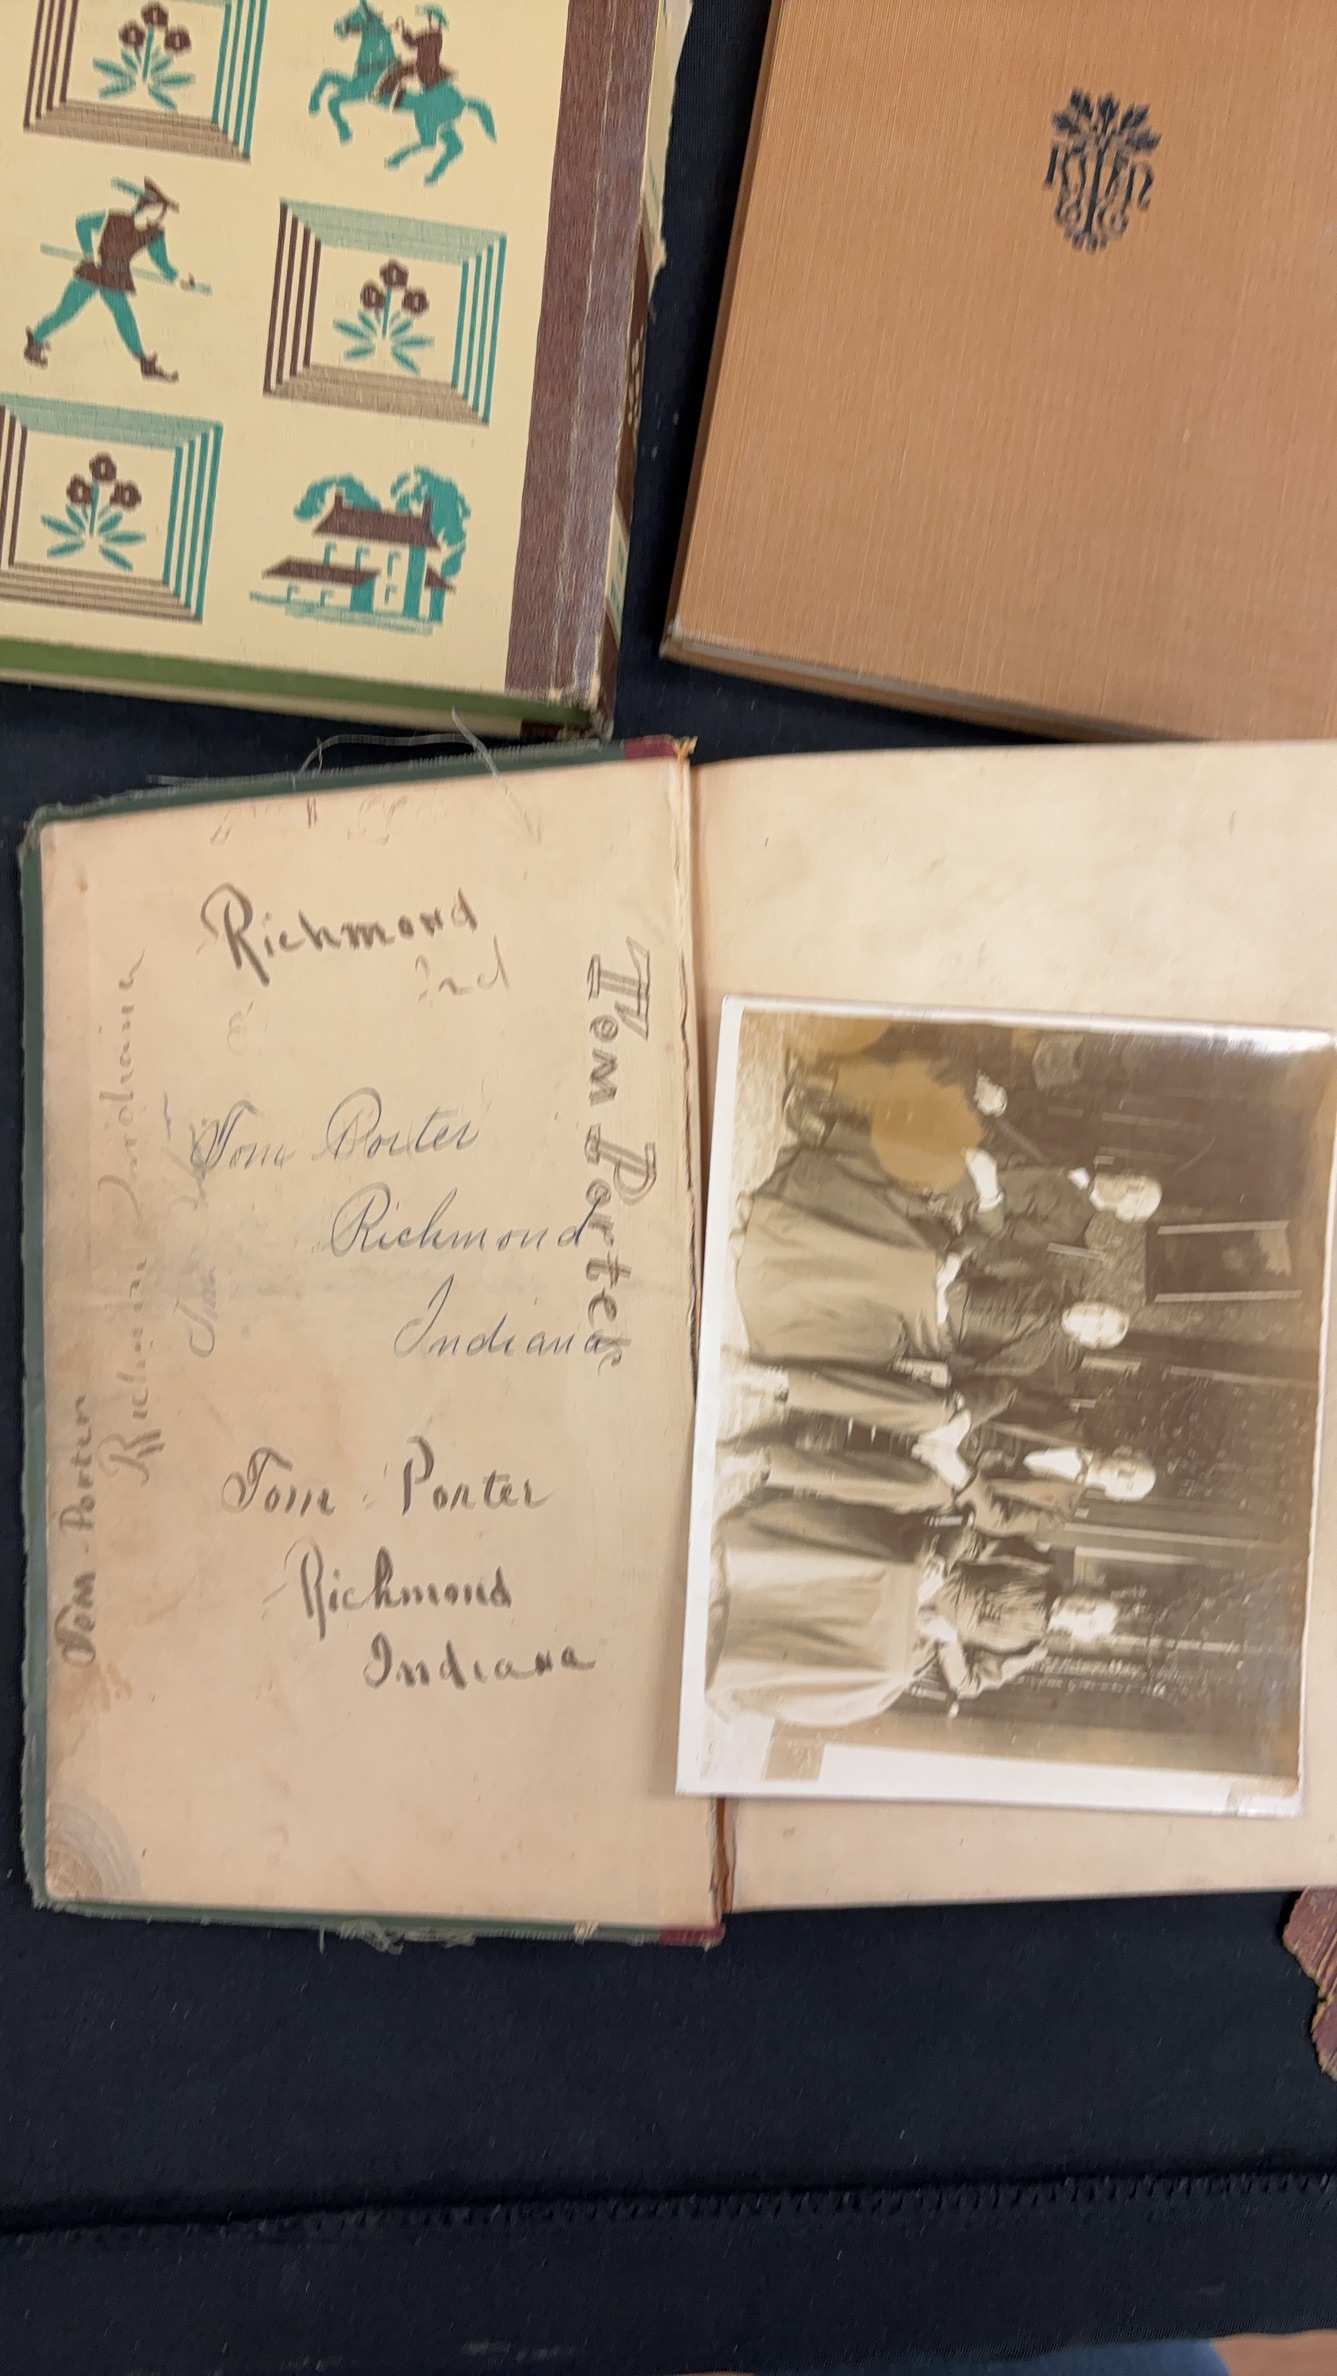 Richmond
Ind
Tom Porter
Richmond
Indiana
Tom Porter
Richmond
Indiana
Tom Porter
Tom-Porter
Richmond Indiana
Tom